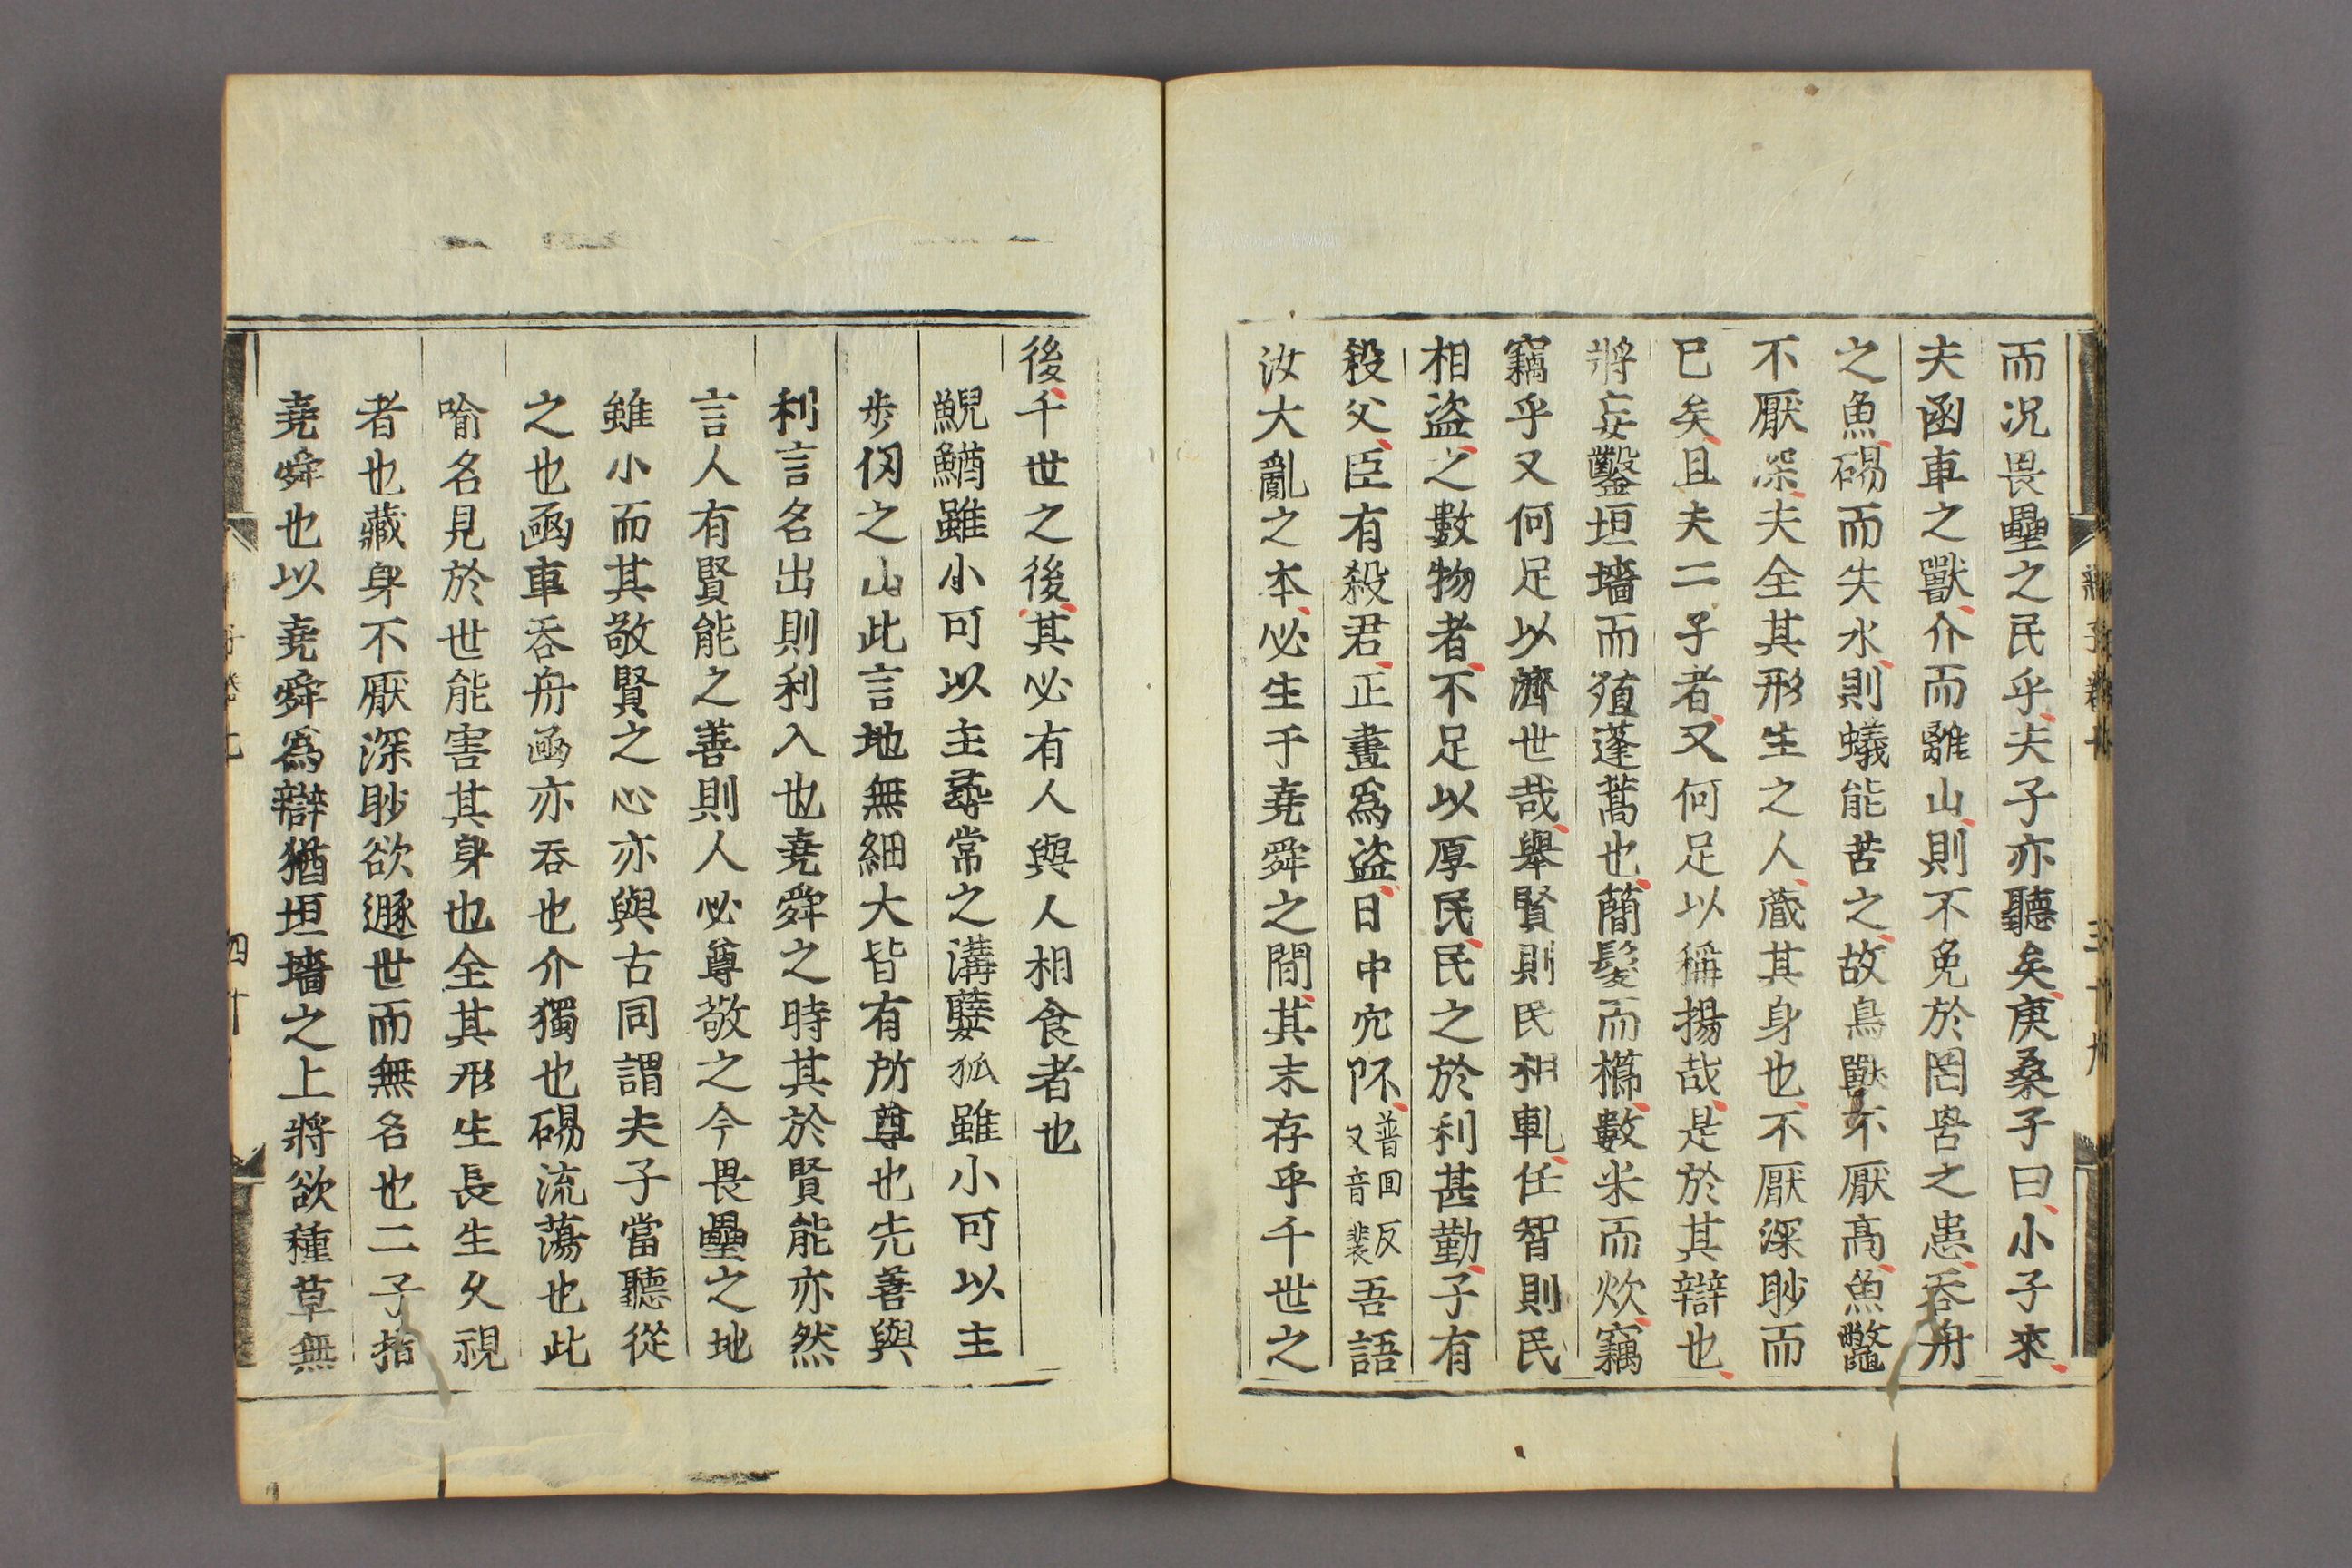 而况畏壘之民乎夫子亦聽矣庚桑子曰小子來
夫函車之獸介而離山則不免於罔罟之患吞舟
之魚碭而失水則蟻能苦之故鳥獸不厭髙魚鼈
不厭深夫全其形生之人藏其身也不厭深眇而
已矣且夫二子者又何足以稱揚哉是於其辯也
將妄鑿垣墻而殖蓬蒿也簡髮而櫛數米而炊竊
竊乎又何足以濟世哉舉賢則民相軋任智則民
相盜之數物者不足以厚民民之於利甚勤子有
殺父臣有殺君正晝爲盜日中穴阫普回反又音裴吾語
汝大亂之本必生于堯舜之間其末存乎千世之
後千世之後其必有人與人相食者也
鯢鰌雖小可以主尋常之溝㜸狐雖小可以主
步仭之山此言地無細大皆有所尊也先善與
利言名出則利入也堯舜之時其於賢能亦然
言人有賢能之善則人必尊敬之今畏壘之地
雖小而其敬賢之心亦與古同謂夫子當聽從
之也函車吞舟函亦吞也介獨也碭流蕩也此
喻名見於世能害其身也全其形生長生久視
者也藏身不厭深眇欲遯世而無名也二子指
堯舜也以堯舜爲辯猶垣墻之上將欲種草無